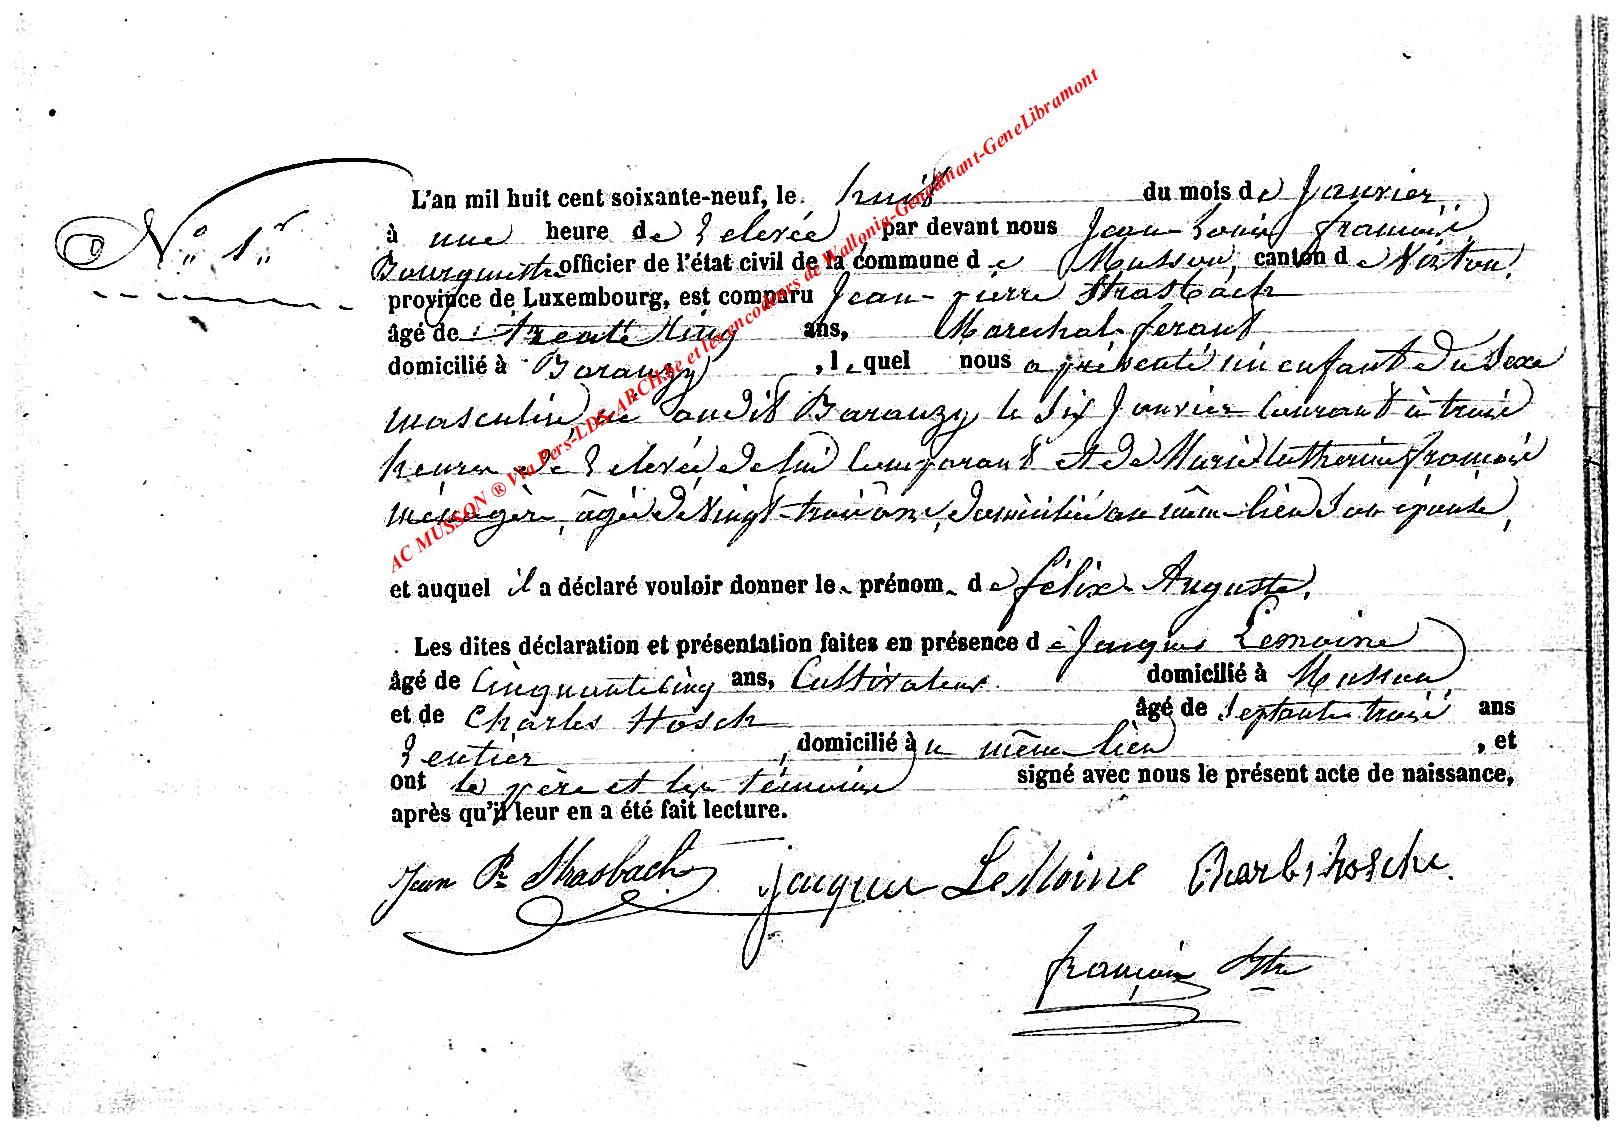 N° 1er
L'an mil huit cent soixante-neuf, le huit du mois de Janvier
à une heure de relevée par devant nous Jean Louis françois
Bourgmestre officier de l'état civil de la commune de Musson, canton de Virton,
province de Luxembourg, est comparu Jean-pierre Strasbach
âgé de trente cinq ans, Marechal ferant
domicilié à Baranzy, lequel nous a présenté un enfant du sexe
masculin, né audit Baranzy le six Janvier courant à trois
heures de relevée, de lui comparant et de Marie Catherine françois
ménagère, âgée de vingt-trois ans, domiciliée au même lieu son épouse,
et auquel il a déclaré vouloir donner le prénom de félix Auguste.
Les dites déclaration et présentation faites en présence de Jacques Lemoine
âgé de cinquante cinq ans, Cultivateur domicilié à Musson
et de Charles Hosch âgé de septante trois ans
rentier, domicilié au même lieu, et
ont le père et les témoins signé avec nous le présent acte de naissance,
après qu'il leur en a été fait lecture.
Jean Pre Strasbach Jacques LeMoine Charles hosch
françois
AC MUSSON ® Via Pers-LDS-ARCH.be et les encodeurs de Wallonia-Genedinant-GeneLibramont